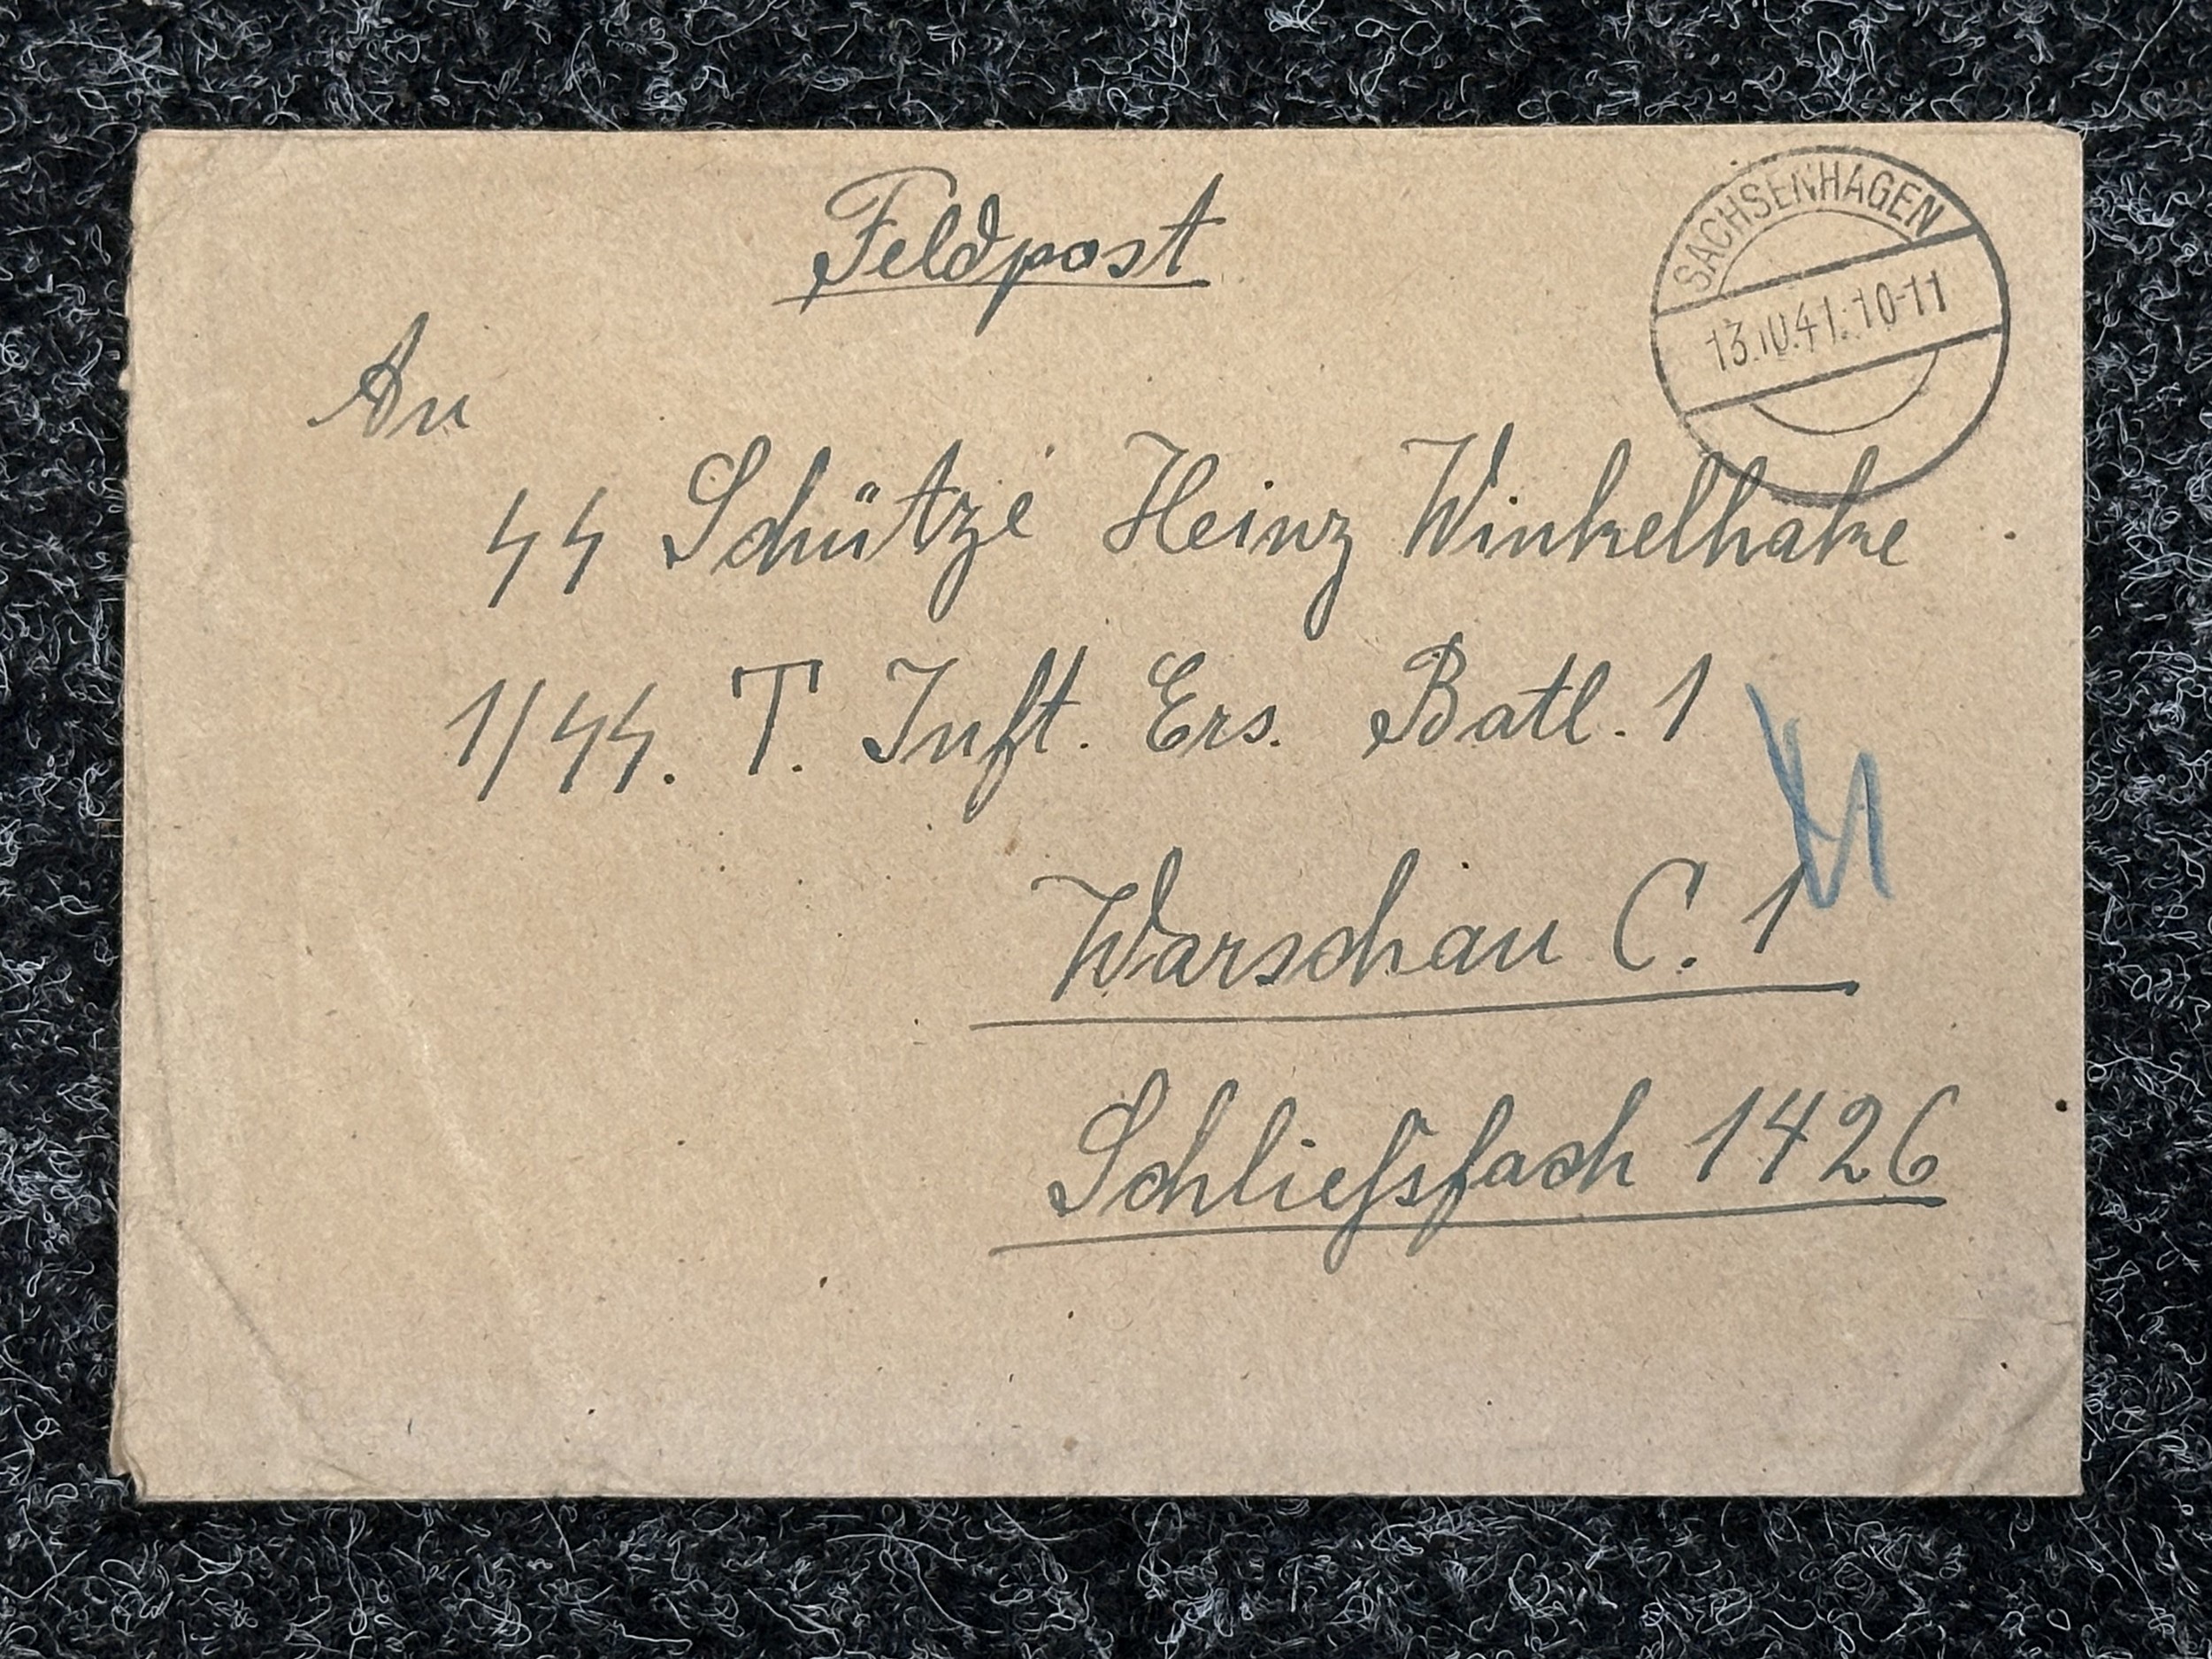 Feldpost
SACHSENHAGEN
13.10.41.10-11
An
SS Schütze Heinz Winkelhake
1/SS. T. Inft. Ers. Batl. 1
Warschau C. 1
Schließfach 1426